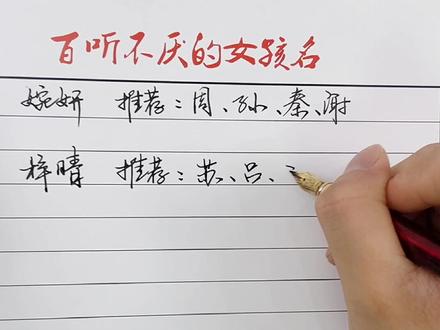 百听不厌的女孩名
婉妍 推荐：周、孙、秦、谢
梓晴 推荐：苏、吕、